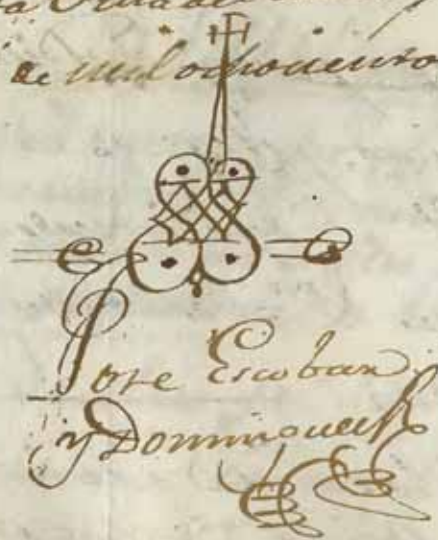 de mil ochocientos
Jose Escobar
y Dominguez